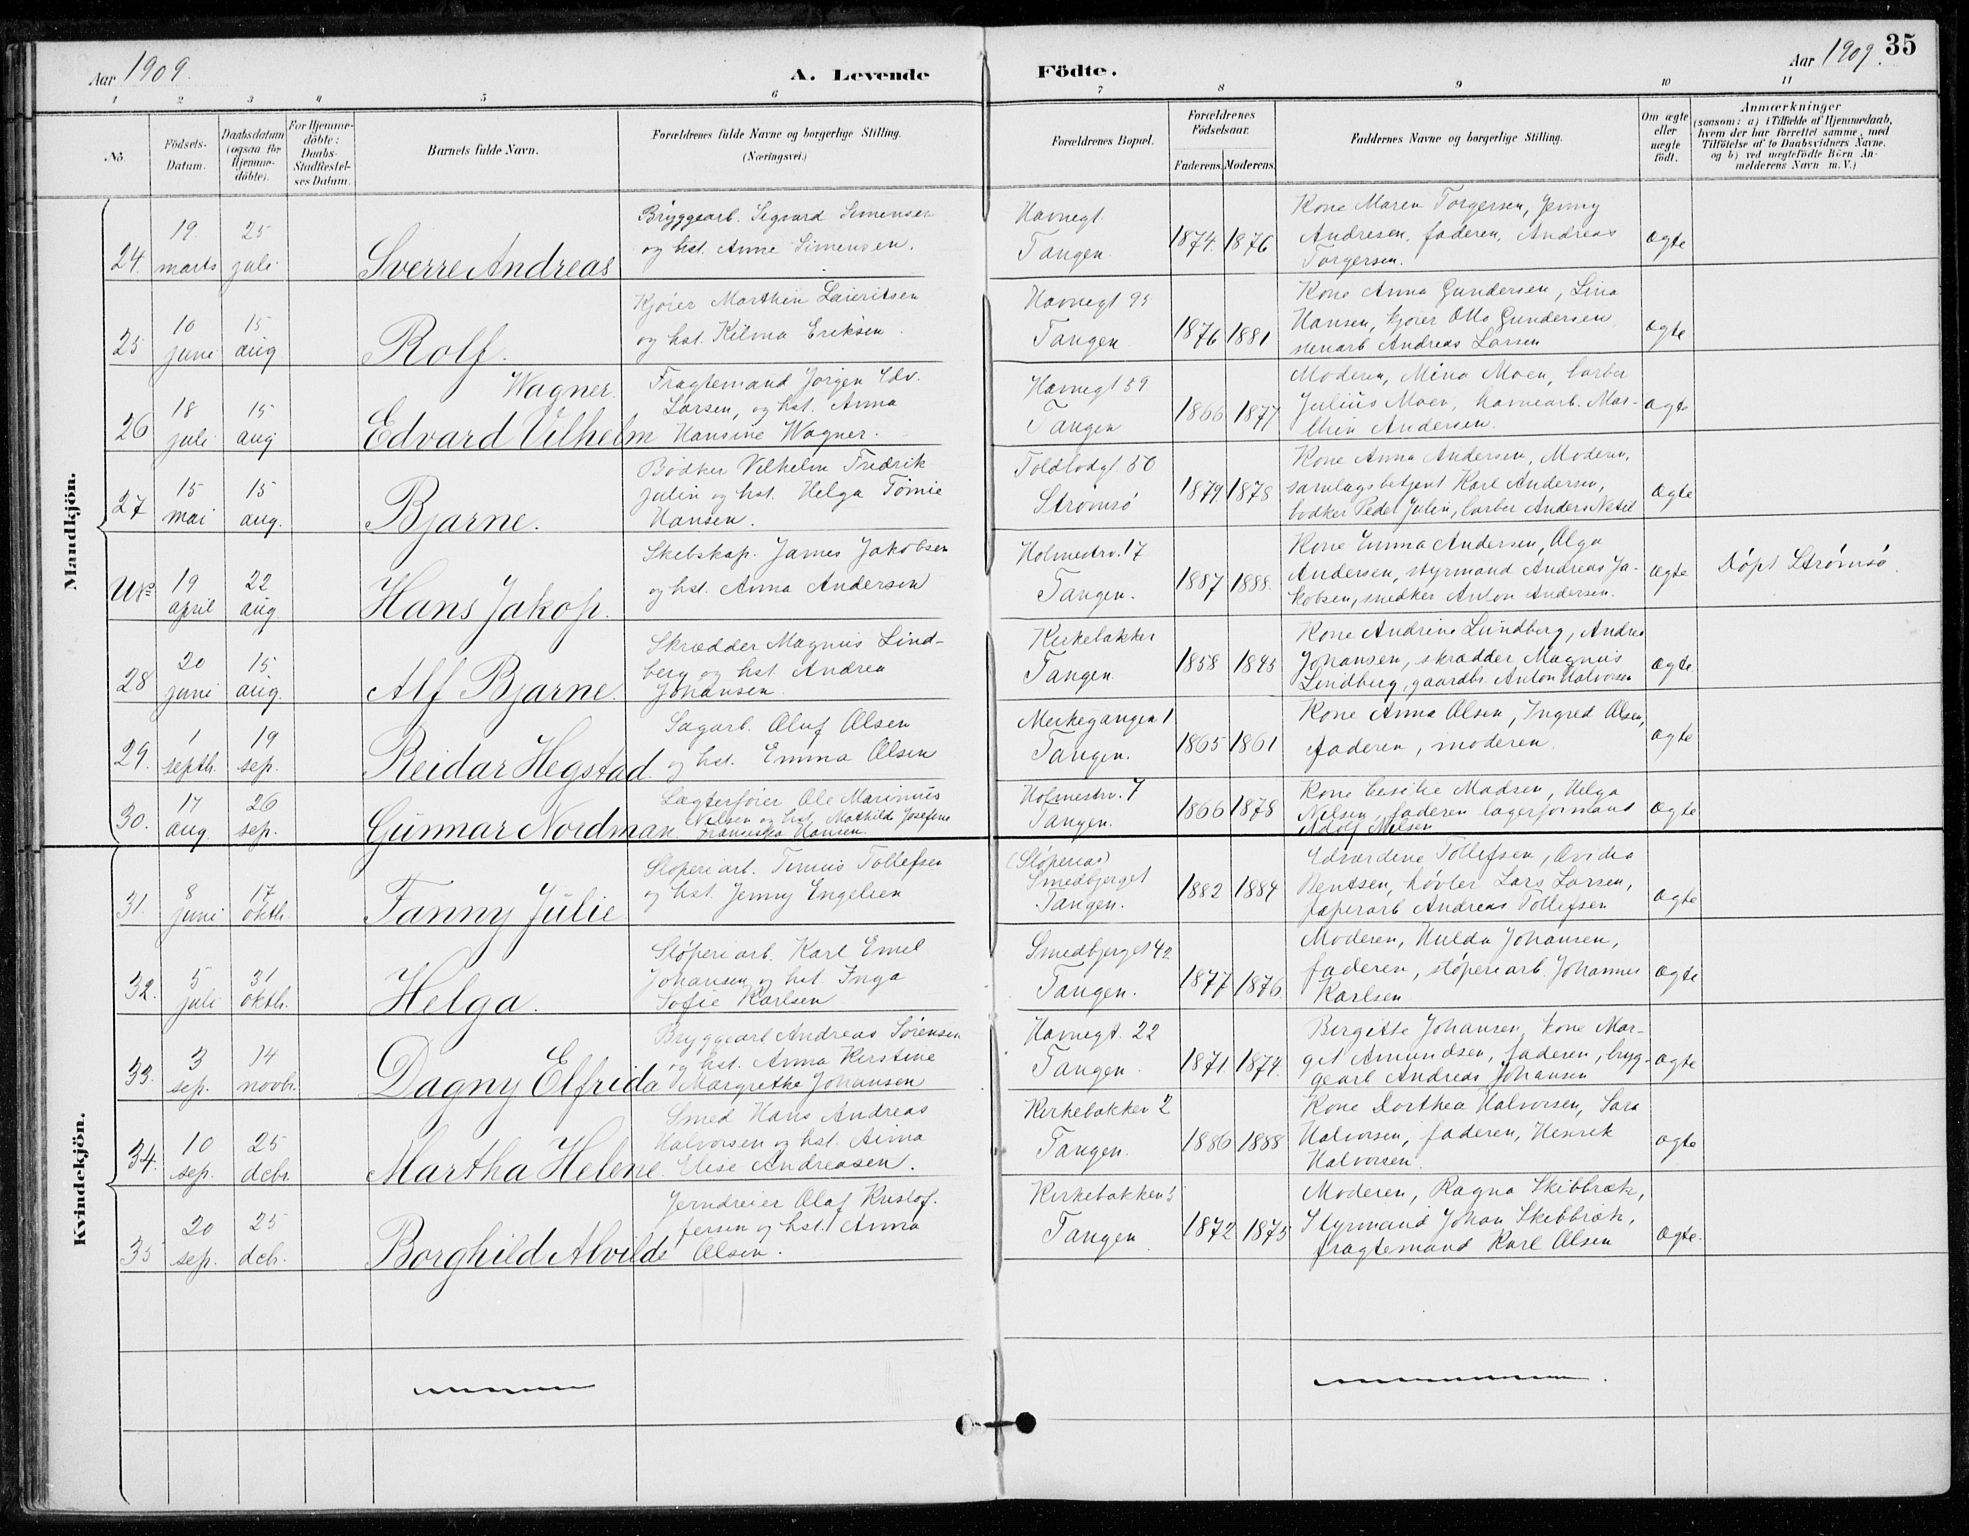 Aar 1909.
A. Levende Födte.
Aar 1909. 35
1 2 3 4 5 6 7 8 9 10 11
No.
Födsels-
Datum.
Daabsdatum
(ogsaa for
Hjemme-
döbte).
For Hjemme-
döbte:
Daabs-
Stadfæstel-
ses Datum.
Barnets fulde Navn.
Forældrenes fulde Navne og borgerlige Stilling.
(Næringsvei.)
Forældrenes Bopæl.
Forældrenes
Födselsaar.
Faderens. Moderens.
Faddernes Navne og borgerlige Stilling.
Om ægte
eller
uægte
födt.
Anmærkninger
(saasom: a) i Tilfælde af Hjemmedaab,
hvem der har forrettet samme, med
Tilföielse af to Daabsvidners Navne,
og b) ved uægtefödte Börn An-
melderens Navn m. V.)
Mandkjön.
24. 19. marts 25 juli Sverre Andreas
Bryggearb. Sigvard Simensen
og hst. Anne Simensen.
Havnegt.
Tangen.
1874. 1876
Kone Maren Torgersen, Jenny
Andresen, faderen, Andreas
Torgersen.
ægte
25 10 juni 15 aug Rolf.
Kjører Marthin Lauritsen
og hst. Kilma Eriksen.
Havnegt 95
Tangen
1876 1881
Kone Anna Gundersen, Lina
Hansen, kjører Otto Gundersen
stenarb Andreas Larsen
ægte
26 18 juli 15 aug Edvard Vilhelm
Wagner.
Fragtemand Jørgen Edv.
Larsen, og hst. Anna
Hansine Wagner.
Havnegt 59
Tangen
1866 1877
Moderen, Mina Moen, barber
Julius Moen, havnearb. Mar-
thin Andersen.
ægte
27 15 mai 15 aug. Bjarne.
Bødker Vilhelm Fredrik
Julin og hst. Helga Tomie
Hansen.
Toldbodgt. 50
Strømsø
1879 1878
Kone Anna Andersen, Moderen,
samlagsbetjent Karl Andersen,
bødker Peder Julin, barber Anders
ægte
19 april 22 aug Hans Jakop.
Skibskap. James Jakobsen
og hst. Anna Andersen
Holmestrv. 17
Tangen.
1887 1888.
Kone Emma Andersen, Olga
Andersen, styrmand Andreas Ja-
kobsen, snedker Anton Andersen.
ægte
Døpt Strømsø.
28 20 juni 15 aug. Alf Bjarne.
Skrædder Magnus Lind-
berg og hst. Andrea
Johansen.
Kirkebakken
Tangen.
1858 1845
Kone Andrine Lundberg, Andrea
Johansen, skrædder Magnus
Lindberg, gaardbr. Anton Halvorsen
ægte
29. 1 septb. 19 sep. Reidar Hegstad.
Sagarb. Oluf Olsen
og hst. Emma Olsen
Merkegangen 1
Tangen.
1865 1861
Kone Anna Olsen, Ingred Olsen,
faderen, moderen.
ægte
30. 17 aug. 26 sep. Gunnar Nordman
Lægterfører Ole Marinius
Nilsen og hst. Mathilde Josefine
Franciska Hansen.
Holmestrv. 7
Tangen.
1866 1878
Kone Cesilie Madsen, Helga
Nilsen, faderen lagerformand
Adolf Nilsen
ægte
Kvindekjön.
31. 8 juni 17 oktb. Fanny Julie
Støperiarb. Tinius Tollefsen
og hst. Jenny Engelsen
Smedbjerget
Tangen.
1882 1884
Edvardine Tollefsen, Ovidia
Bentsen, høvler Lars Larsen,
papirarb Andreas Tollefsen
ægte
32. 5 juli 31 oktb. Helga.
Støperiarb. Karl Emil
Johansen og hst Inga
Sofie Karlsen
Smedbjerget 42
Tangen.
1877 1876
Moderen, Hulda Johansen,
faderen, støperiarb. Johannes
Karlsen
ægte
33. 3 sep. 14 novbr. Dagny Elfrida
Bryggearb Andreas Sørensen
og hst. Anna Kirstine
Margrethe Johansen
Havnegt. 22
Tangen.
1871 1874.
Birgitte Johansen, kone Mar-
git Amundsen, faderen, bryg-
gearb Andreas Johansen
ægte
34. 10 sep. 25 dcbr. Martha Helene
Smed Hans Andreas
Halvorsen og hst. Anna
Elise Andreasen.
Kirkebakken 2
Tangen.
1886 1888
Kone Dorthea Halvorsen, Sara
Halvorsen, faderen, Henrik
Halvorsen.
ægte
35 20 sep. 25 dcbr. Borghild Alvilde
Jerndreier Olaf Kristof-
fersen og hst. Anna
Olsen.
Kirkebakken 5
Tangen
1872 1875
Moderen, Ragna Skibbræk,
Styrmand Johan Skibbræk,
fragtemand Karl Olsen
ægte.